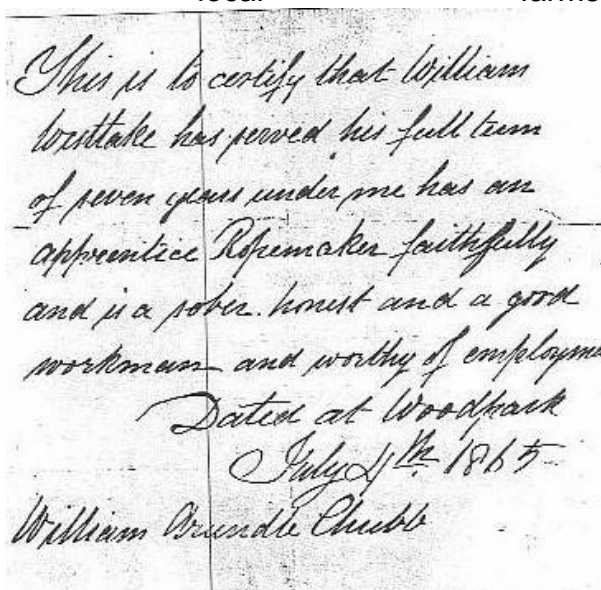 This is to certify that William
Westlake has served his full term
of seven years under me has an
apprentice Ropemaker faithfully
and is a sober. honest and a good
workman and worthy of employme
Dated at Woodpark
July 4th 1865
William Arundle Chubb